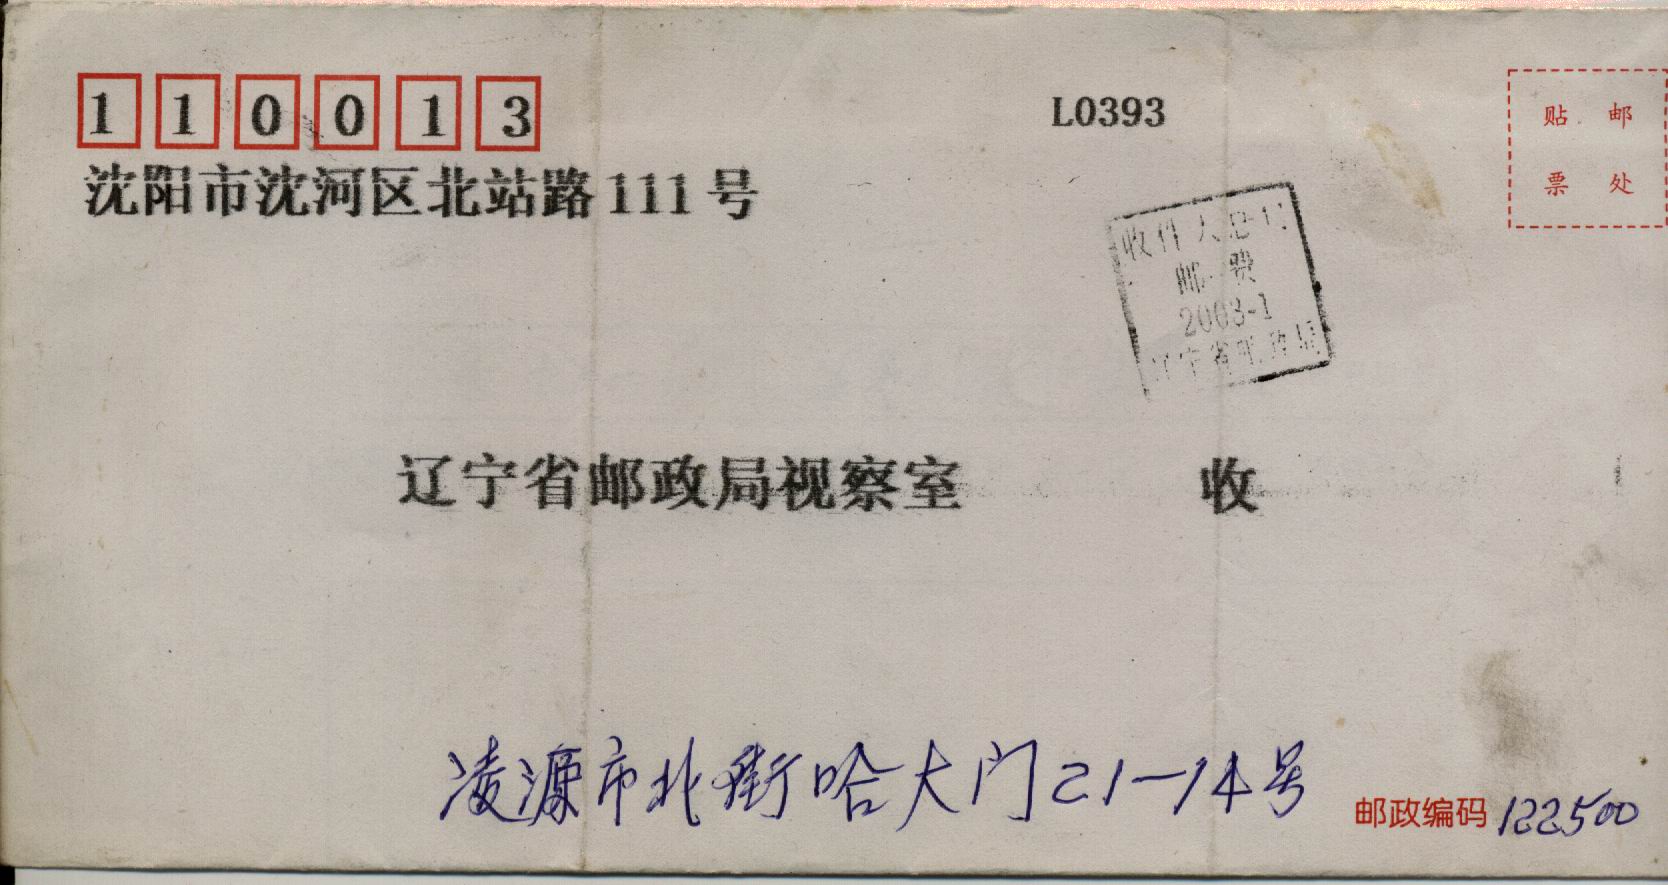 110013
L0393
贴 邮
票 处
沈阳市沈河区北站路111号
收件人总付
邮 费
2003-1
辽宁省邮政局
辽宁省邮政局视察室 收
凌源市北街哈大门21-14号
邮政编码 122500